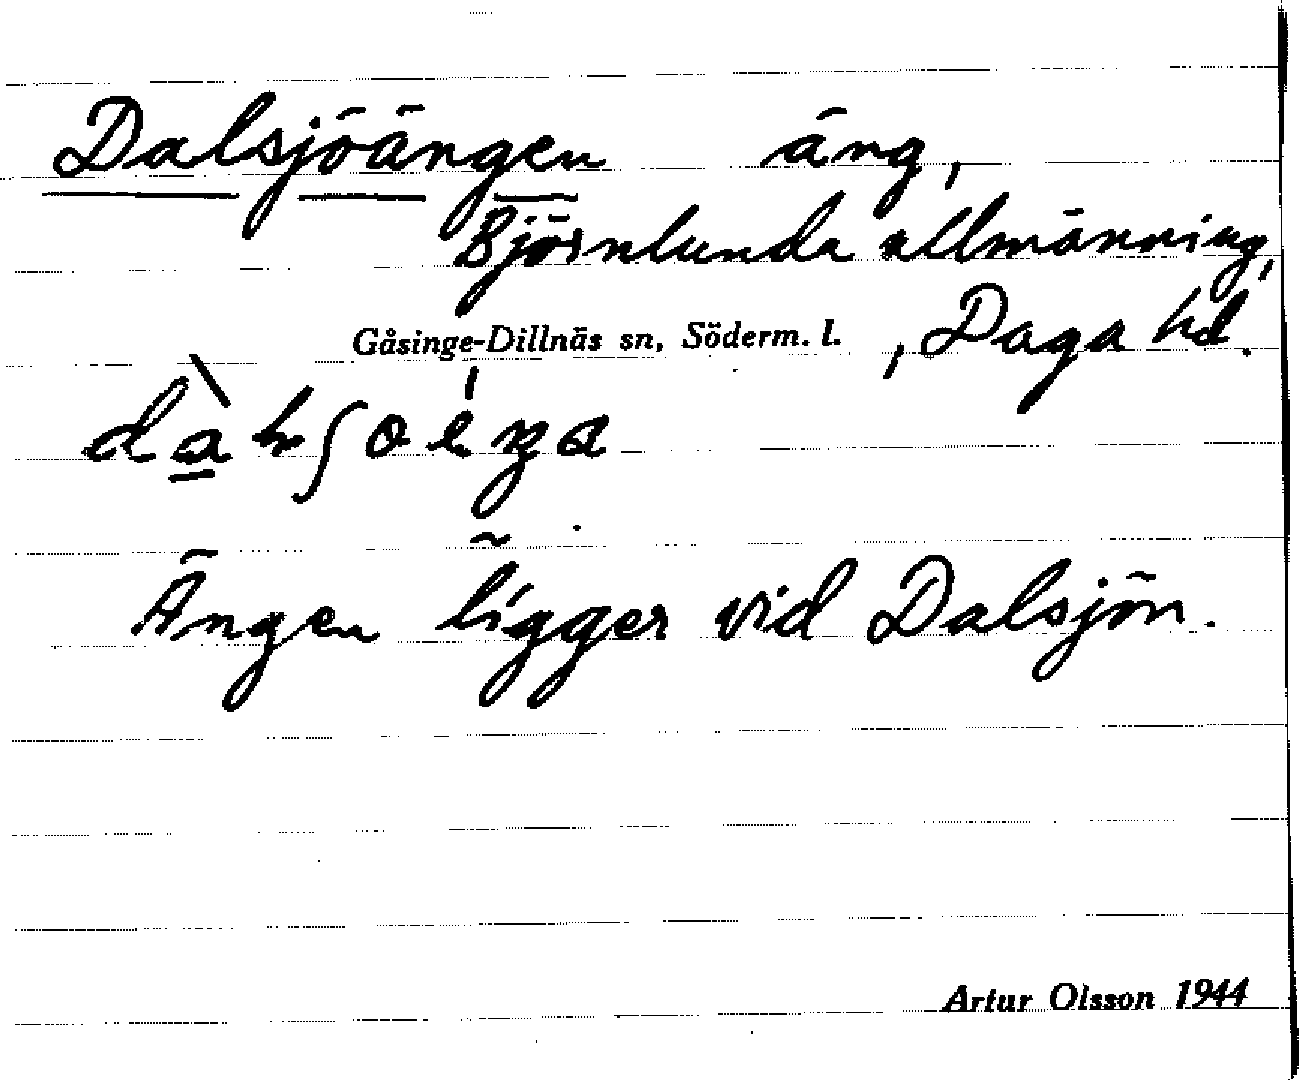 Dalsjöängen äng,
Björnlunda allmänning,
Gåsinge-Dillnäs sn, Söderm. l. , Daga hd.
Ängen ligger vid Dalsjön.
Artur Olsson 1944